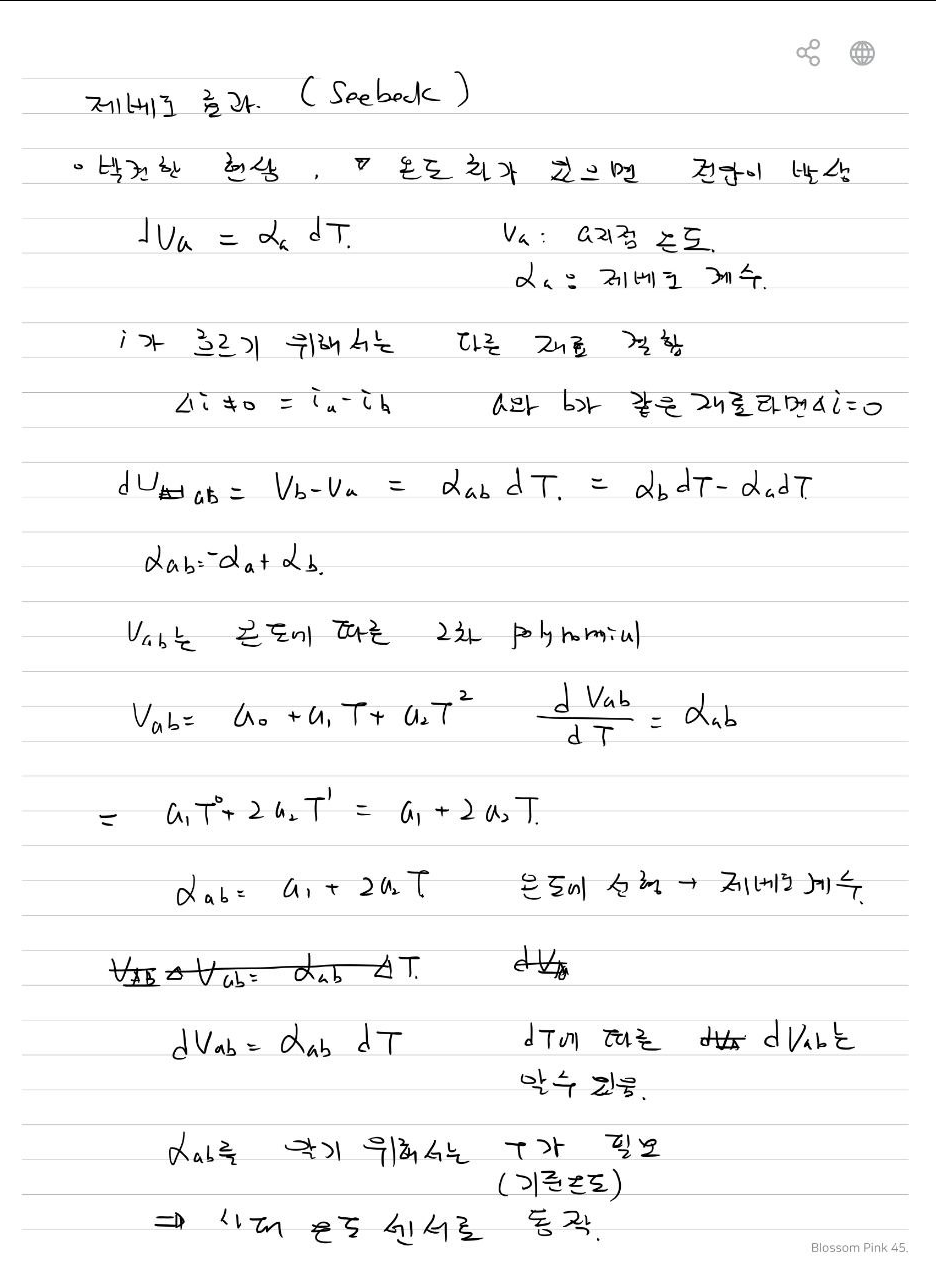 제베크 효과. (Seebeck)
◦ 발견한 현상, ▽ 온도 차가 있으면 전압이 발생
dVa = αa dT. Va: a지점 온도.
αa : 제베크 계수.
i가 흐르기 위해서는 다른 재료 결합
Δi ≠ 0 = ia - ib a와 b가 같은 재료라면 Δi = 0
dVab = Vb - Va = αab dT. = αb dT - αa dT
αab = -αa + αb.
Vab는 온도에 따른 2차 polynomial
Vab = a₀ + a₁T + a₂T² dVab/dT = αab
= a₁T⁰ + 2a₂T¹ = a₁ + 2a₂T.
αab = a₁ + 2a₂T 온도에 선형 → 제베크 계수.
VAB Δ Vab = αab ΔT. dVa
dVab = αab dT dT에 따른 dVab는
알수 있음.
αab를 알기 위해서는 T가 필요
(기준온도)
⇒ 상대 온도 센서로 동작.
Blossom Pink 45,